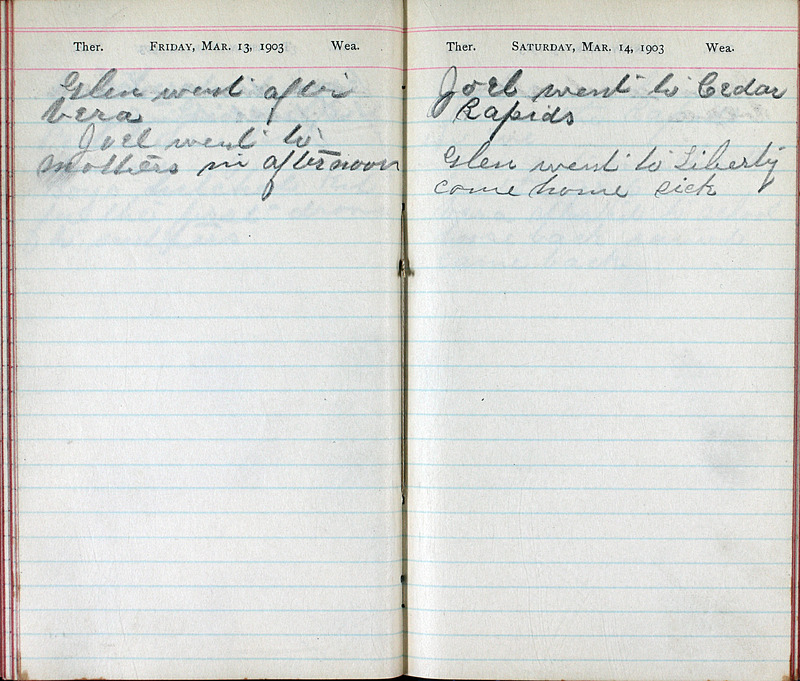 Ther. FRIDAY, MAR. 13, 1903 Wea.
Glen went after
Vera
Joel went to
mothers in afternoon
Ther. SATURDAY, MAR. 14, 1903 Wea.
Joel went to Cedar
Rapids
Glen went to Liberty
come home sick